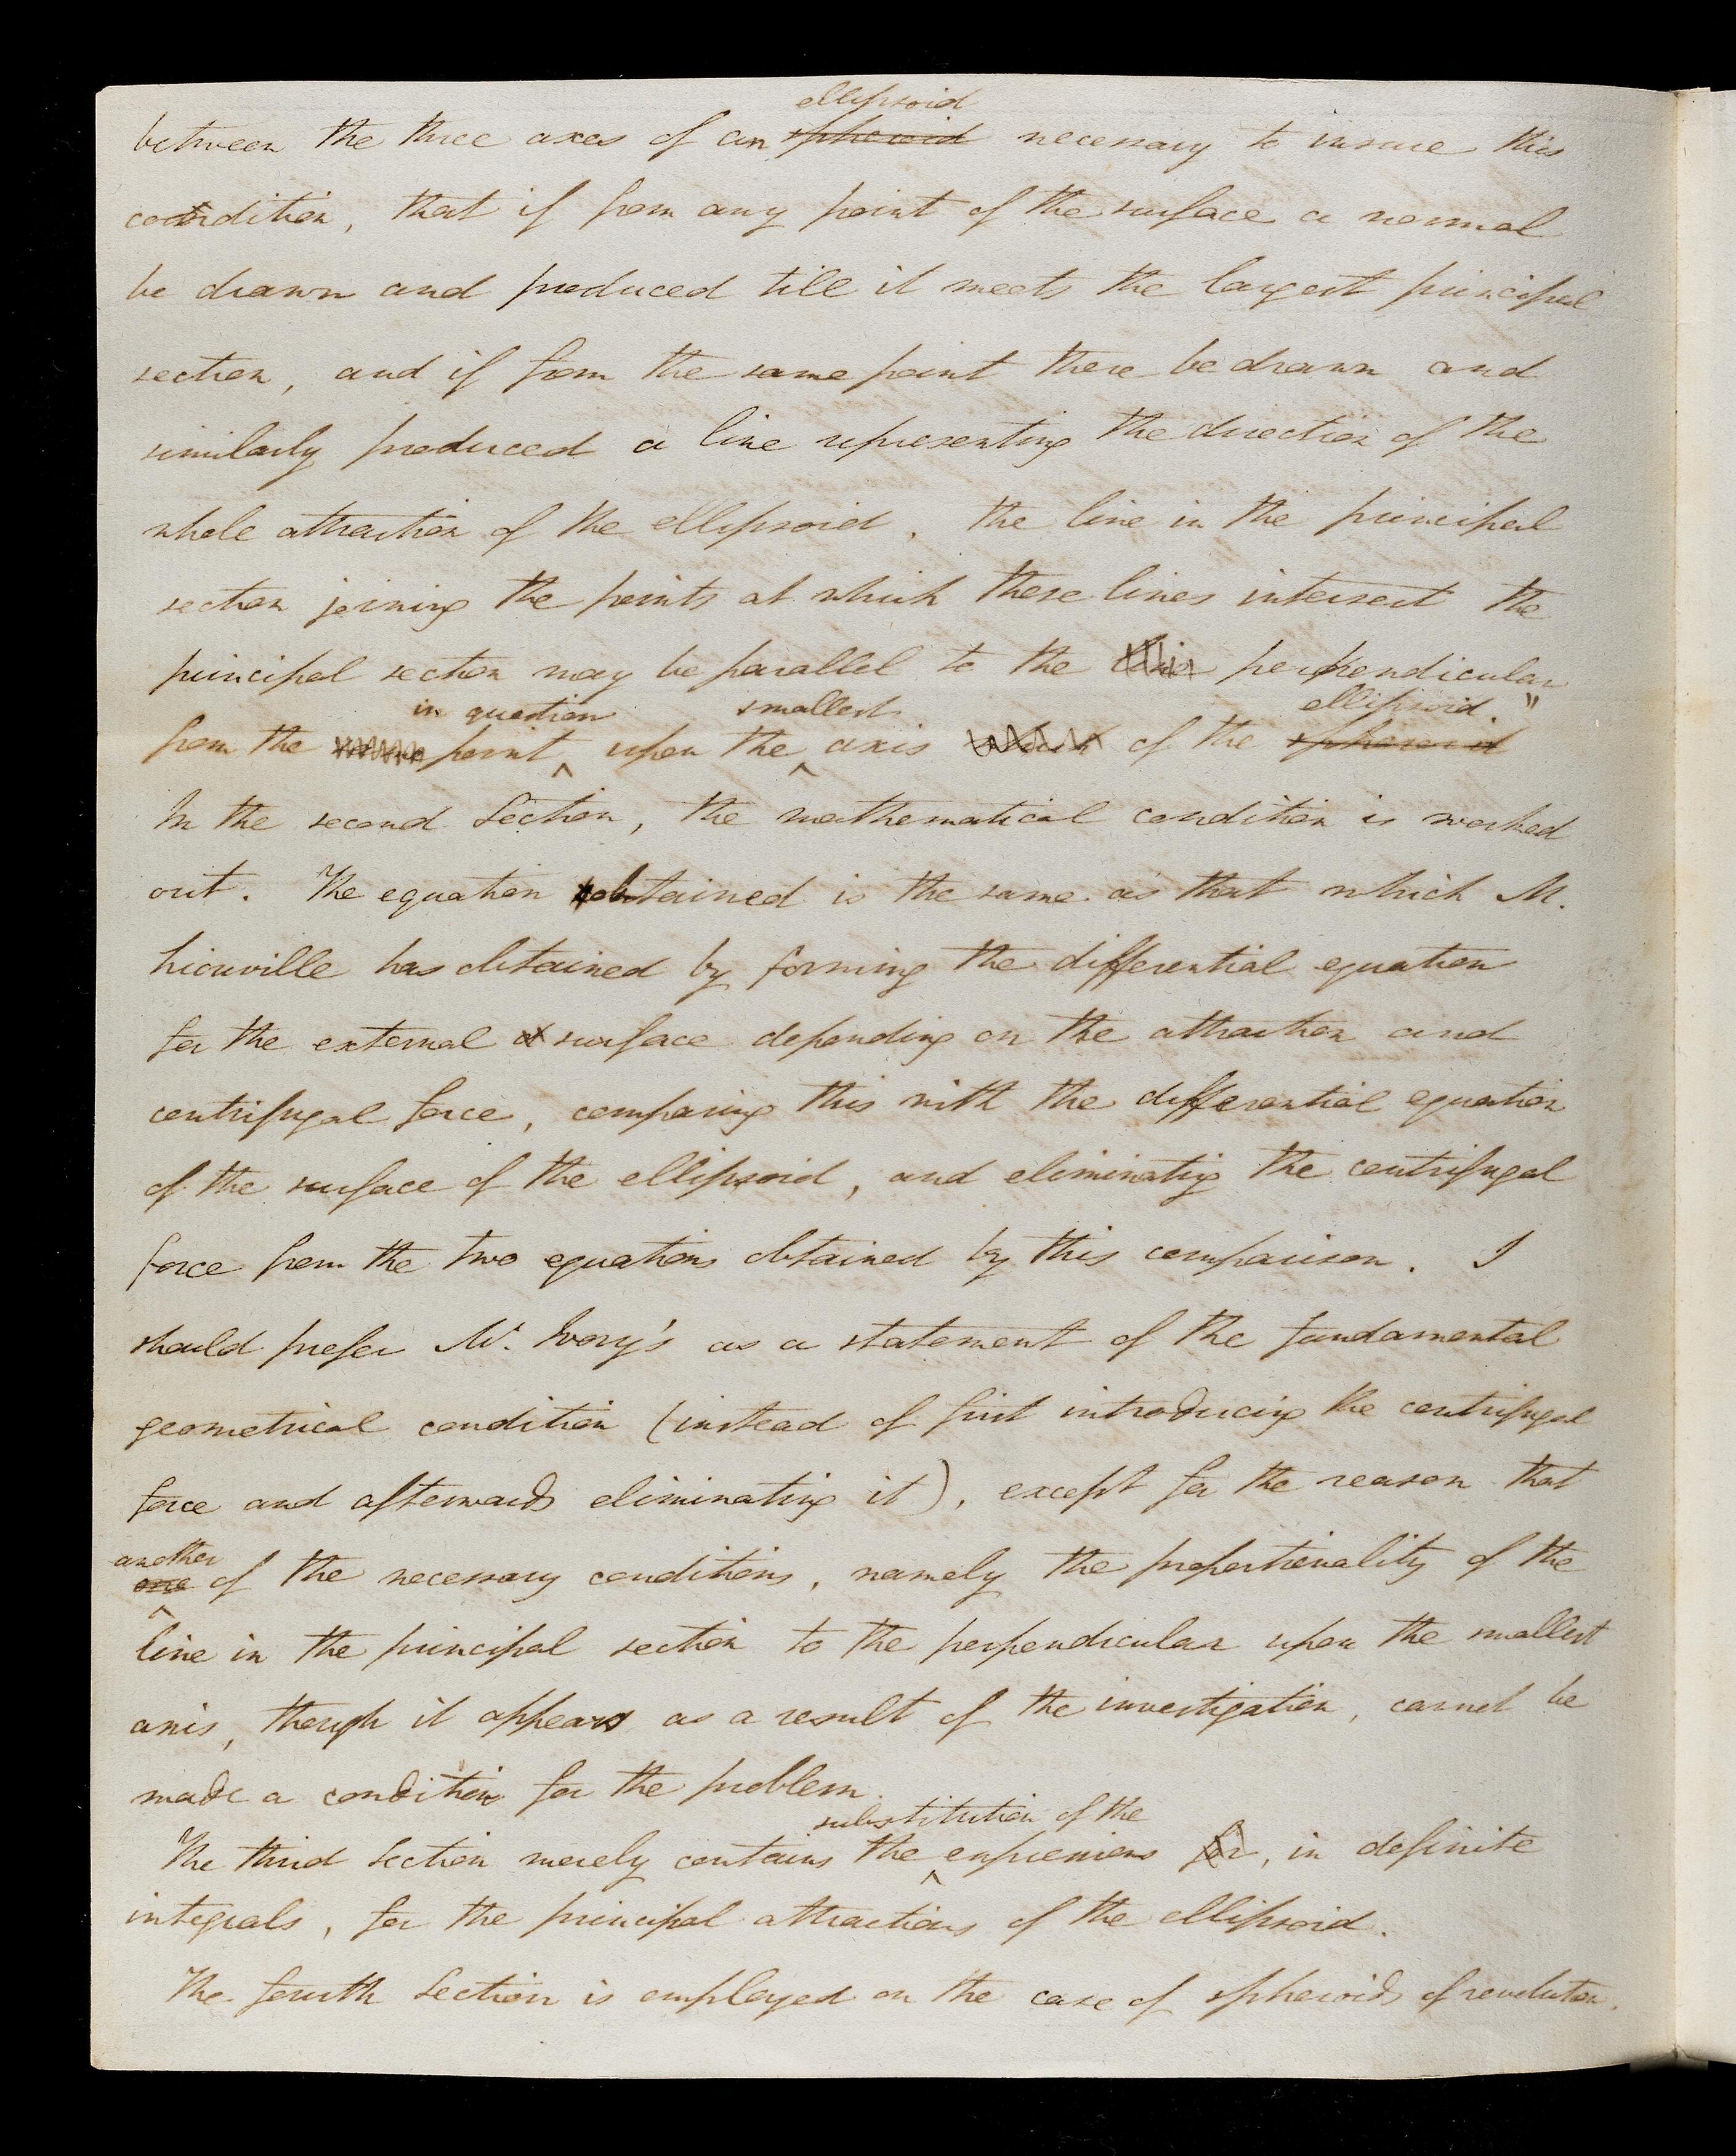 ellipsoid
between the three axes of an spheroid necessary to insure this
condition, that if from any point of the surface a normal
be drawn and produced till it meets the largest principal
section, and if from the same point there be drawn and
similarly produced a line representing the direction of the
whole attraction of the ellipsoid, the line in the principal
section joining the points at which these lines intersect the
principal section may be parallel to the perpendicular
in question smallest ellipsoid."
from the point upon the axis of the spheroid
In the second Section, the mathematical condition is worked
out. The equation obtained is the same as that which M.
Liouville has obtained by forming the differential equation
for the external surface depending on the attraction and
centrifugal force, comparing this with the differential equation
of the surface of the ellipsoid, and eliminatig the centrifugal
force from the two equations obtained by this comparison. I
should prefer Mr. Ivory's as a statement of the fundamental
geometrical condition (instead of first introducing the centrifugal
force and afterwards eliminating it), except for the reason that
another
one of the necessary conditions, namely the proportionality of the
line in the principal section to the perpendicular upon the smallest
axis, though it appears as a result of the investigation, cannot be
made a condition for the problem.
substitution of the
The third Section merely contains the expressions for, in definite
integrals, for the principal attractions of the ellipsoid.
The fourth Section is employed on the case of spheroids of revolution.